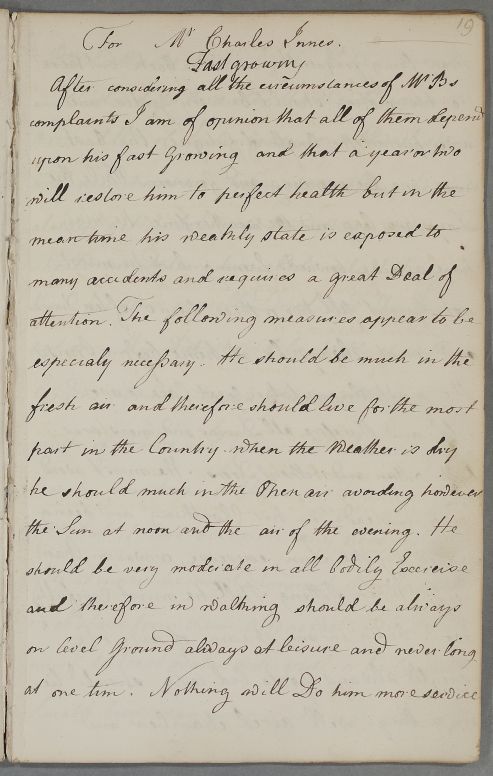 19
For Mr Charles Innes.
Fast growing
After considering all the circumstances of Mr Bs
complaints I am of opinion that all of them depend
upon his fast Growing and that a year or two
will restore him to perfect health but in the
mean time his weakly state is exposed to
many accidents and requires a great Deal of
attention. The following measures appear to be
especialy necessary. He should be much in the
fresh air and therefore should live for the most
part in the Country when the Weather is dry
he should much in the Open air avoiding however
the Sun at noon and the air of the evening. He
should be very moderate in all bodily Excercise
and therefore in walking should be always
on level Ground always at leisure and never long
at one tim. Nothing will Do him more service